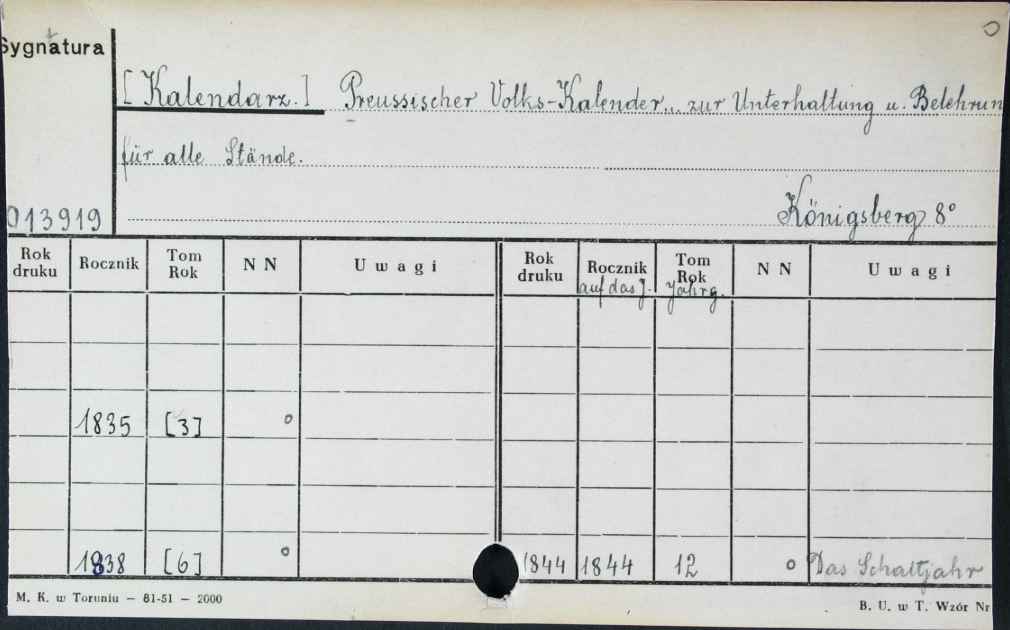 Sygnatura
[Kalendarz.] Preussischer Volks-Kalender... zur Unterhaltung u. Belehrun
für alle Stände.
013919 Königsberg 8°
Rok druku Rocznik Tom Rok NN Uwagi Rok druku Rocznik auf das J. Tom Rok Jahrg. NN Uwagi
1835 [3] o
1838 [6] o 1844 1844 12 o Das Schaltjahr
M. K. w Toruniu — 61-51 — 2000 B. U. w T. Wzór Nr